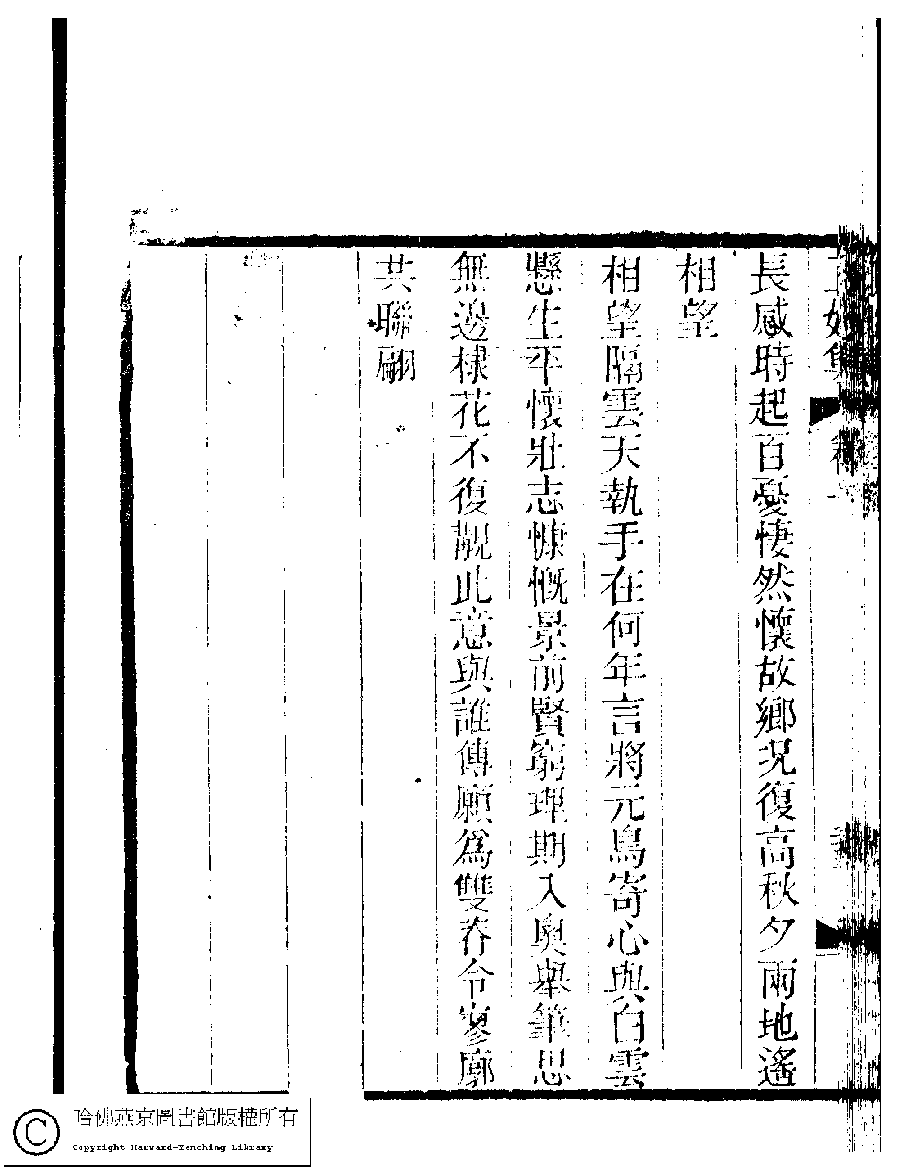 長感時起百憂悽然懷故鄉況復高秋夕兩地遙
相望
相望隔雲天執手在何年言將元鳥寄心與白雲
懸生平懷壯志慷慨景前賢窮理期入奥舉筆思
無邊棣花不復覩此意與誰傳願爲雙脊令寥廓
共聯翩
哈佛燕京圖書館版權所有
Copyright Harvard-Yenching Library